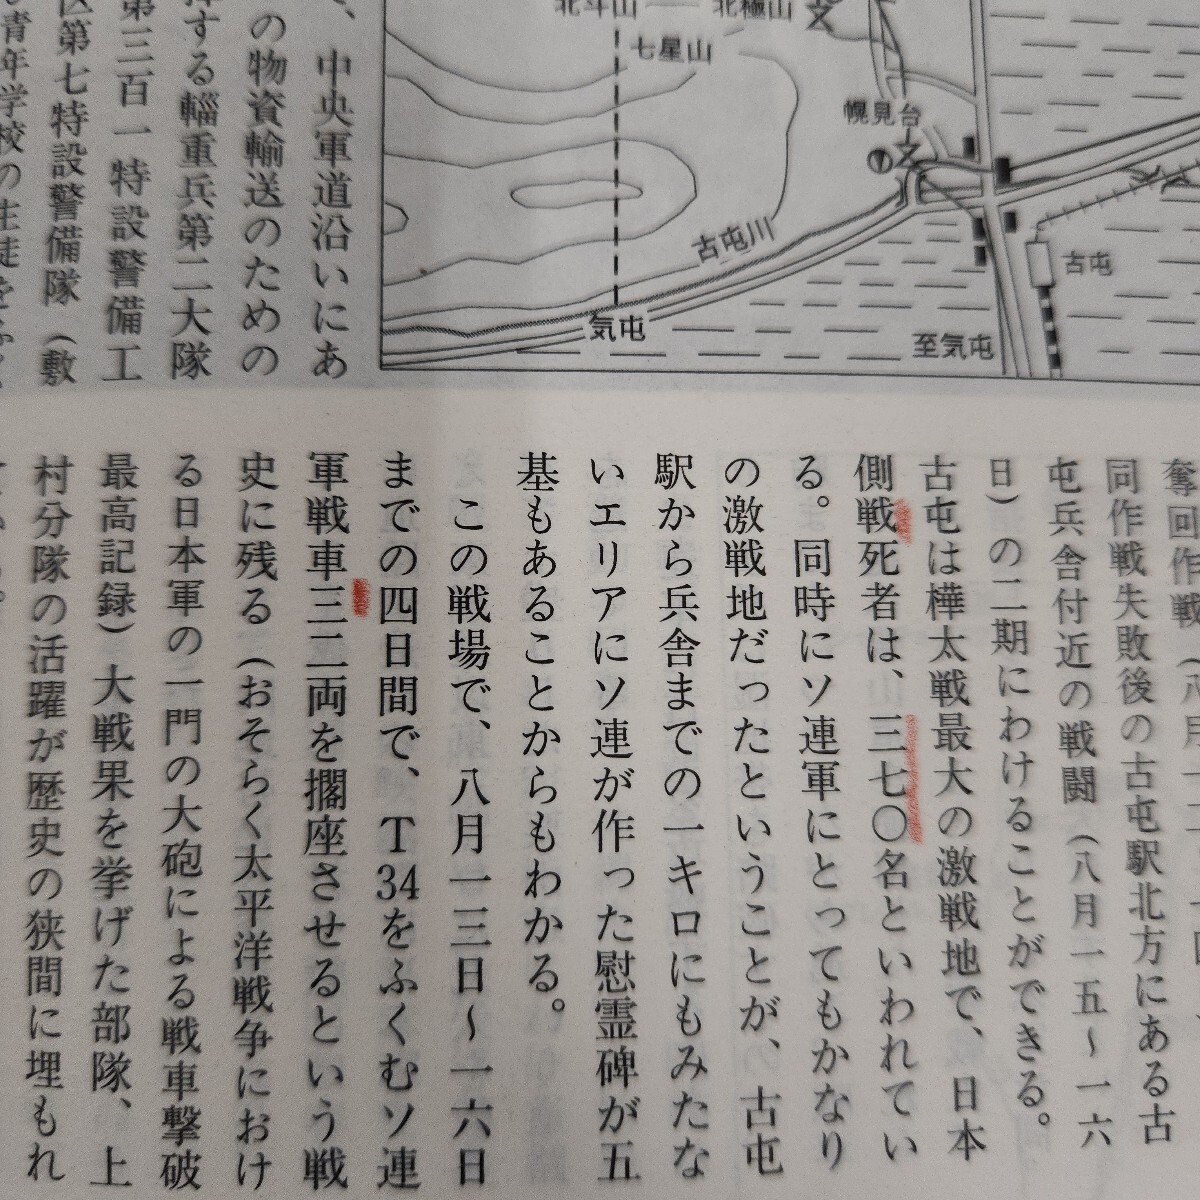 北斗山
北極山
七星山
幌見台
古屯川
古屯
気屯
至気屯
、中央軍道沿いにあ
の物資輸送のための
する輜重兵第二大隊
第三百一特設警備工
区第七特設警備隊（敷
青年学校の生徒を
奪回作戦（八月一
同作戦失敗後の古屯駅北方にある古
屯兵舎付近の戦闘（八月一五〜一六
日）の二期にわけることができる。
古屯は樺太戦最大の激戦地で、日本
側戦死者は、三七〇名といわれてい
る。同時にソ連軍にとってもかなり
の激戦地だったということが、古屯
駅から兵舎までの一キロにもみたな
いエリアにソ連が作った慰霊碑が五
基もあることからもわかる。
この戦場で、八月一三日〜一六日
までの四日間で、T34をふくむソ連
軍戦車三二両を擱座させるという戦
史に残る（おそらく太平洋戦争におけ
る日本軍の一門の大砲による戦車撃破
最高記録）大戦果を挙げた部隊、上
村分隊の活躍が歴史の狭間に埋もれ